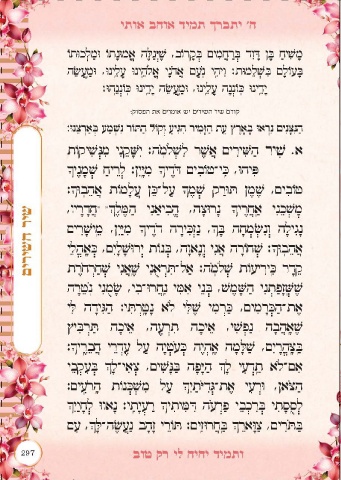 ה' יתברך תמיד אוהב אותי
מָשִׁיחַ בֶּן דָּוִד בְּרַחֲמִים בְּקָרוֹב, שֶׁיְּגַלֶּה אֱמוּנָתוֹ וּמַלְכוּתוֹ
בָּעוֹלָם בִּשְׁלֵמוּת: וִיהִי נֹעַם אֲדֹנָי אֱלֹהֵינוּ עָלֵינוּ, וּמַעֲשֵׂה
יָדֵינוּ כּוֹנְנָה עָלֵינוּ, וּמַעֲשֵׂה יָדֵינוּ כּוֹנְנֵהוּ:
קודם שיר השירים יש אומרים את הפסוק:
הַנִּצָּנִים נִרְאוּ בָאָרֶץ עֵת הַזָּמִיר הִגִּיעַ וְקוֹל הַתּוֹר נִשְׁמַע בְּאַרְצֵנוּ:
א. שִׁיר הַשִּׁירִים אֲשֶׁר לִשְׁלֹמֹה: יִשָּׁקֵנִי מִנְּשִׁיקוֹת
פִּיהוּ, כִּי־טוֹבִים דֹּדֶיךָ מִיָּיִן: לְרֵיחַ שְׁמָנֶיךָ
טוֹבִים, שֶׁמֶן תּוּרַק שְׁמֶךָ עַל־כֵּן עֲלָמוֹת אֲהֵבוּךָ:
מָשְׁכֵנִי אַחֲרֶיךָ נָּרוּצָה, הֱבִיאַנִי הַמֶּלֶךְ חֲדָרָיו,
נָגִילָה וְנִשְׂמְחָה בָּךְ, נַזְכִּירָה דֹדֶיךָ מִיַּיִן, מֵישָׁרִים
אֲהֵבוּךָ: שְׁחוֹרָה אֲנִי וְנָאוָה, בְּנוֹת יְרוּשָׁלָ͏ִם, כְּאָהֳלֵי
קֵדָר כִּירִיעוֹת שְׁלֹמֹה: אַל־תִּרְאוּנִי שֶׁאֲנִי שְׁחַרְחֹרֶת
שֶׁשֱּׁזָפַתְנִי הַשָּׁמֶשׁ, בְּנֵי אִמִּי נִחֲרוּ־בִי, שָׂמֻנִי נֹטֵרָה
אֶת־הַכְּרָמִים, כַּרְמִי שֶׁלִּי לֹא נָטָרְתִּי: הַגִּידָה לִּי
שֶׁאָהֲבָה נַפְשִׁי, אֵיכָה תִרְעֶה, אֵיכָה תַּרְבִּיץ
בַּצָּהֳרָיִם, שַׁלָּמָה אֶהְיֶה כְּעֹטְיָה עַל עֶדְרֵי חֲבֵרֶיךָ:
אִם־לֹא תֵדְעִי לָךְ הַיָּפָה בַּנָּשִׁים, צְאִי־לָךְ בְּעִקְבֵי
הַצֹּאן, וּרְעִי אֶת־גְּדִיֹּתַיִךְ עַל מִשְׁכְּנוֹת הָרֹעִים:
לְסֻסָתִי בְּרִכְבֵי פַרְעֹה דִּמִּיתִיךְ רַעְיָתִי: נָאווּ לְחָיַיִךְ
בַּתֹּרִים, צַוָּארֵךְ בַּחֲרוּזִים: תּוֹרֵי זָהָב נַעֲשֶׂה־לָּךְ, עִם
ותמיד יהיה לי רק טוב
שיר השירים
297